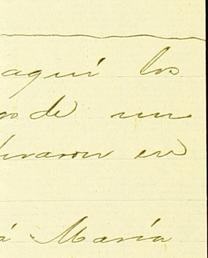 aquí los
go de un
laron en
á María